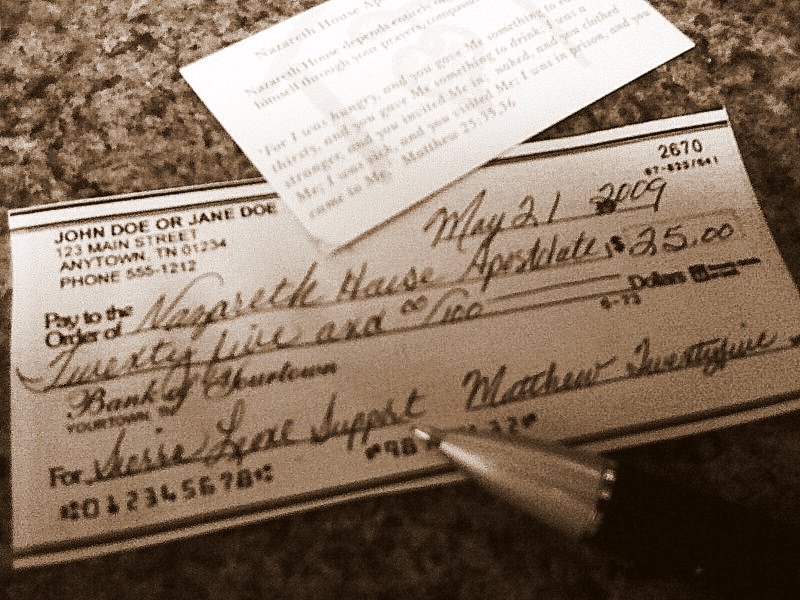 Nazareth House Ap
Nazareth House depends enti
himself through your prayers, compass
For I was hungry, and you gave Me something to
thirsty, and you gave Me something to drink, I was a
stranger, and you invited Me in; naked, and you clothed
Me; I was sick, and you visited Me; I was in prison, and you
came to Me. Matthew 25:35,36
2670
87-823/641
JOHN DOE OR JANE DOE
123 MAIN STREET
ANYTOWN, TN 01234
PHONE 555-1212
May 21 2009
Pay to the
Order of Nazareth House Apostolate $ 25.00
Twenty five and 00/100 Dollars
Bank of Yourtown
YOURTOWN, TN
For Sierra Leone Support Matthew Twentyfive
012345678